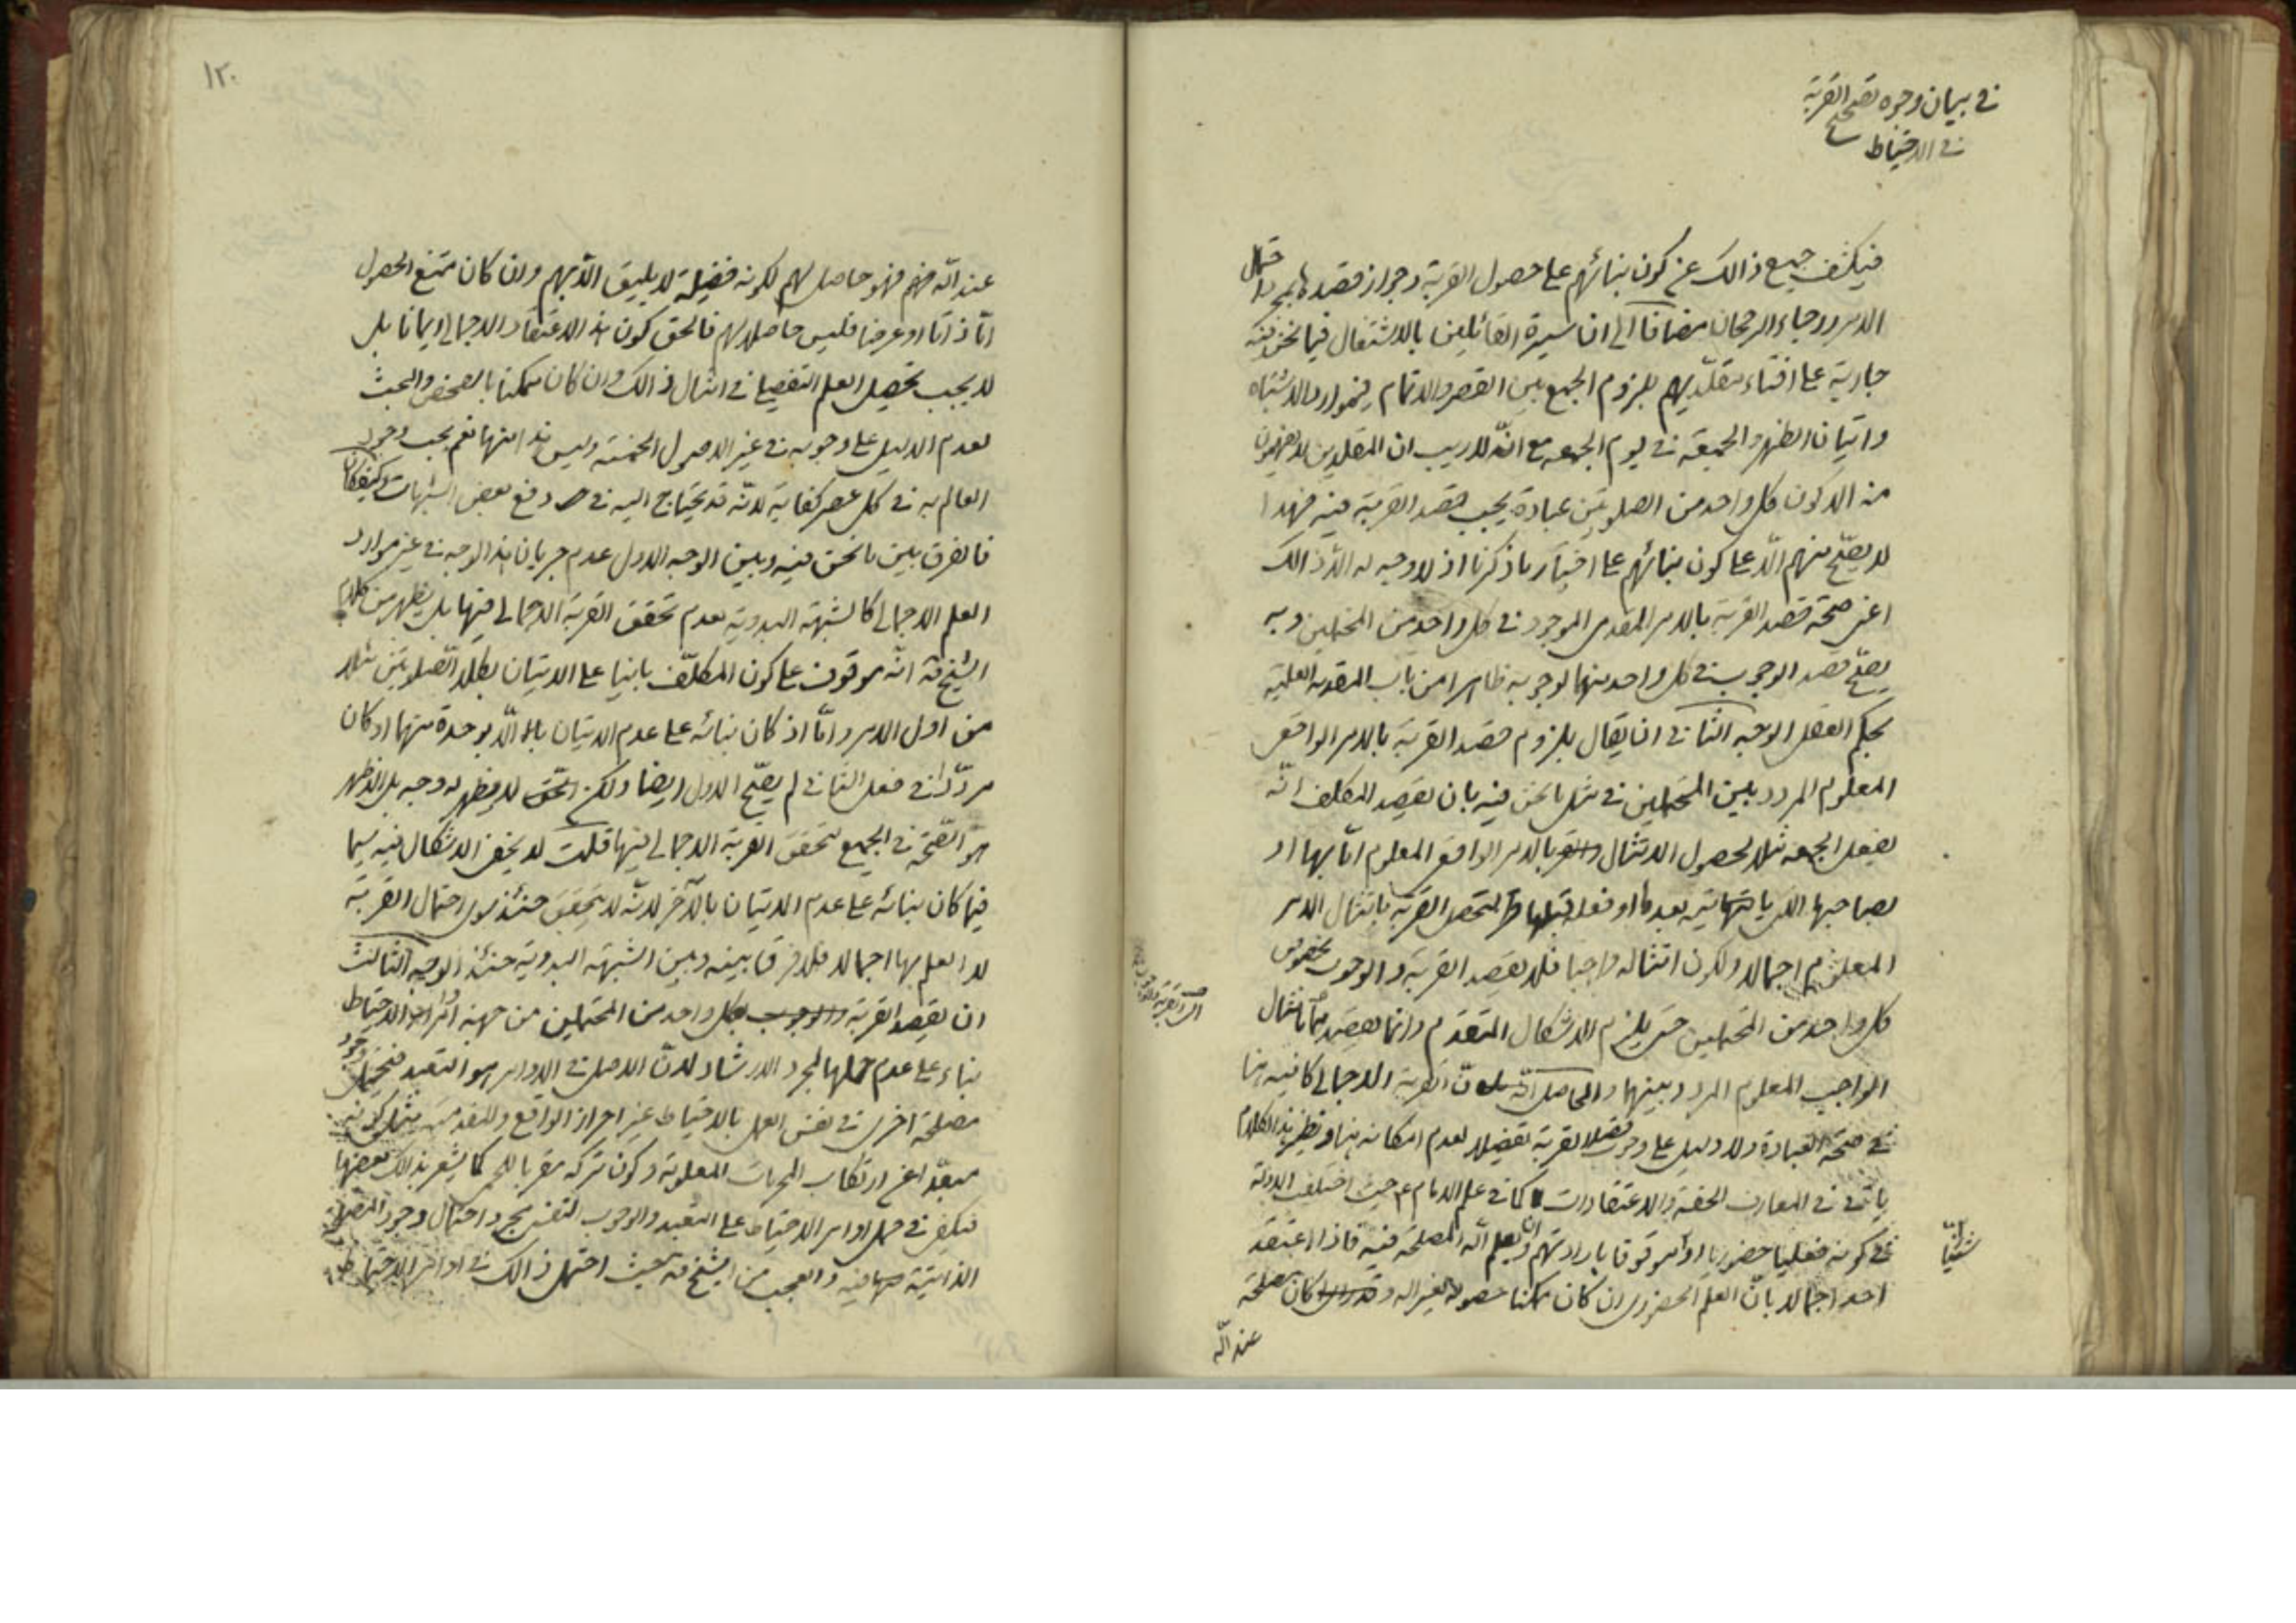 في بيان وجوه تصحيح القربة
في الاحتياط
فيكشف جميع ذالك عن كون بنائهم على حصول القربة وجواز قصدها بمجرد احتمال
الامر ورجاء الرجحان مضافا الى ان سيرة القائلين بالاشتغال فيما نحن فيه
جارية على افتاء مقلديهم بلزوم الجمع بين القصر والاتمام في موارد الاشتباه
واتيان الظهر والجمعة في يوم الجمعه مع انه لا ريب ان المقلدين لا يفهمون
منه الا كون كل واحد من الصلوتين عبادة يجب قصد القربة فيه فهذا
لا يصح منهم الا على كون بنائهم على اختيار ما ذكرنا اذ لا وجه له الا ذالك
اعني صحة قصد القربة بالامر المقدمي الموجود في كل واحد من المحتملين وبه
يصح قصد الوجوب في كل واحد منهما لوجوبه ظاهرا من باب المقدمة العلمية
بحكم العقل الوجه الثاني ان يقال بلزوم قصد القربة بالامر الواقعي
المعلوم المردد بين المحتملين في مثل ما نحن فيه بان يقصد المكلف انه
يفعل الجمعه مثلا لحصول الامتثال بالامر الواقعي المعلوم اما بها او
بصاحبها يأتيه بعدها او فعله قبلها لتحصل القربة بامتثال الامر
المعلوم اجمالا ولكون امتثاله واجبا فلا يقصد القربة والوجوب بخصوص
كل واحد من المحتملين حتى يلزم الاشكال المتقدم وانما يقصد بامتثال
الواجب المعلوم المردد بينهما والحاصل ان القربة الاجمالي كافية هنا
في صحة العبادة ولا دليل على وجوب قصد القربة تفصيلا لعدم امكانه هنا ونظير هذا الكلام
يأتي في المعارف الحقة والاعتقادات كما في علم الامام ع حيث اختلف الادلة
في كونه فعليا حضوريا او موقوفا بارادتهم فاذا اعتقد
احد اجمالا بان العلم الحضوري ان كان ممكنا حصوله لغير الله وكان مصلحة
شيئا
عند الله
١٢٠
عند الله فيهم فهو حاصل لهم لكونه فضيلة لا يليق الا بهم وان كان ممتنع الحصول
اما ذاتا او عرضا فليس حاصلا لهم فالحق كون هذا الاعتقاد الاجمالي ايمانا بل
لا يجب تحصيل العلم التفصيلي في امثال ذالك وان كان ممكنا بالفحص والبحث
لعدم الدليل على وجوبه في غير الاصول الخمسة وليس هذا منها نعم يجب وجود
العالم به في كل عصر كفاية لانه قد يحتاج اليه في دفع بعض الشبهات وكيف كان
فالفرق بين ما نحن فيه وبين الوجه الاول عدم جريان هذا الوجه في غير موارد
العلم الاجمالي كالشبهة البدوية لعدم تحقق القربة الاجمالي فيها بل يظهر من كلام
الشيخ قه انه موقوف على كون المكلف بانيا على الاتيان بكلا الصلوتين مثلا
من اول الامر واما اذ كان بنائه على عدم الاتيان الا بوحدة منهما او كان
مرددا في فعل الثاني لم يصح الاول ايضا ولكن الحق لا يظهر له وجه بل الاظهر
هو الصحة في الجميع لتحقق القربة الاجمالي فيها قلت لا يخفى الاشكال فيه سيما
فيما كان بنائه على عدم الاتيان بالآخر لانه لا يتحقق حينئذ سوى احتمال القربة
لا العلم بها اجمالا فلا فرق بينه وبين الشبهة البدوية حينئذ الوجه الثالث
ان يقصد القربة والوجوب بكل واحد من المحتملين من جهة اوامر الاحتياط
بناء على عدم حملها لمجرد الارشاد لان الاصل في الاوامر هو التعبد فيحتمل وجود
مصلحة اخرى في نفس العمل بالاحتياط غير احراز الواقع
مبعدا عن ارتكاب المحرمات المعلومة وكون تركه مقربا كما يشعر بذالك بعضها
فيكفي في حمل اوامر الاحتياط على التعبد والوجوب النفسي بمجرد احتمال وجود المصلحة
الذاتية فيه والعجب من الشيخ قه حيث احتمل ذالك في اوامر الاحتياط